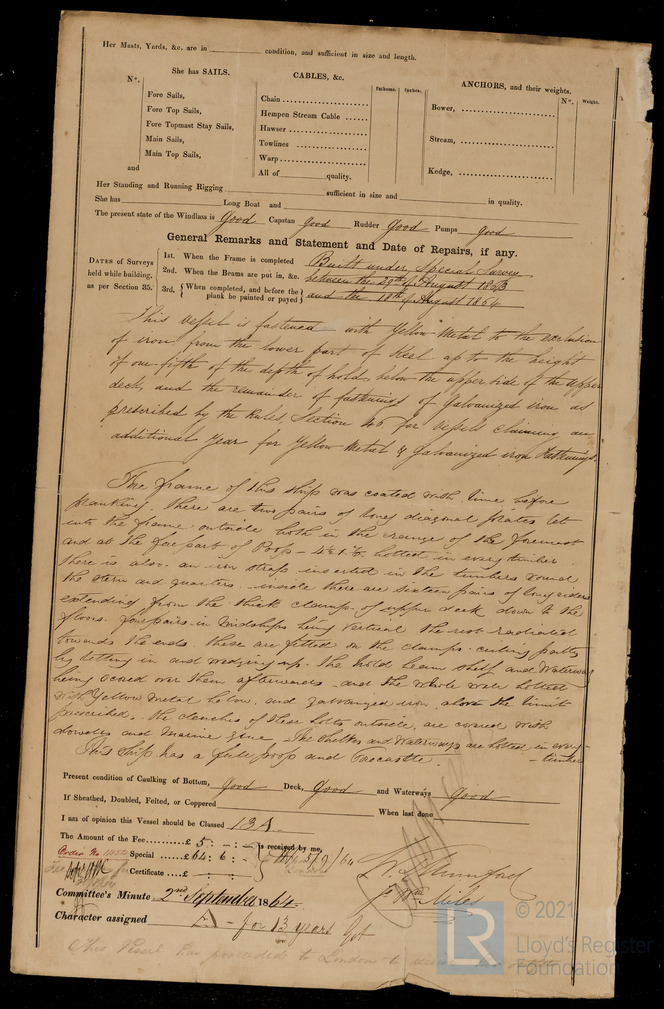 Her Masts, Yards, &c. are in condition, and sufficient in size and length.
She has SAILS.
CABLES, &c.
ANCHORS, and their weights.
N°.
Fathoms. Inches.
N°. Weight.
Fore Sails,
Fore Top Sails,
Fore Topmast Stay Sails,
Main Sails,
Main Top Sails,
and
Chain
Hempen Stream Cable
Hawser
Towlines
Warp
All of quality.
Bower,
Stream,
Kedge,
Her Standing and Running Rigging sufficient in size and in quality.
She has Long Boat and
The present state of the Windlass is Good Capstan good Rudder Good Pumps good
General Remarks and Statement and Date of Repairs, if any.
DATES of Surveys held while building, as per Section 35.
1st. When the Frame is completed Built under Special Survey
2nd. When the Beams are put in, &c. between the August 1863
3rd, { When completed, and before the plank be painted or payed } and the 18th of August 1864
This vessel is fastened with Yellow Metal to the exclusion
of iron from the lower part of Keel up to the height
of one fifth of the depth of hold, below the upper side of the upper
deck, and the remainder of fastenings of Galvanized iron as
prescribed by the Rules, Section 46 for Vessels claiming an
additional Year for Yellow Metal & Galvanized iron Fastenings.
The frame of this ship was coated with lime before
planking. There are two pairs of long diagonal plates let
into the frame outside both in the range of the foremast
and at the fore part of Poop - bolted in every timber.
there is also an iron strap inserted in the timbers round
the stern and quarters. inside there are sixteen pairs of long riders
extending from the thick clamps of upper deck down to the
floors. four pairs in Midships being vertical the rest radiated
towards the ends. these are fitted on the clamps. ceiling partly
by letting in and wedging up. the hold beam shelf and Waterway
being scored over them afterwards and the whole were bolted
with Yellow Metal below, and galvanized iron above the limit
prescribed. the clenches of these bolts outside, are covered with
dowells and Marine glue. The Shelves and Waterways are bolted in every
timber
This Ship has a full poop and Forecastle.
Present condition of Caulking of Bottom, good Deck, good and Waterways good
If Sheathed, Doubled, Felted, or Coppered When last done
I am of opinion this Vessel should be Classed 13A
The Amount of the Fee £ 5 : - : - is received by me,
Special £ 64 : 6 : - 5/9/64
Certificate £ - :
Committee's Minute 2nd September 1864
Wm Miles
Character assigned A - for 13 years
This Vessel has proceeded to London to
© 2021
LR
Lloyd's Register
Foundation